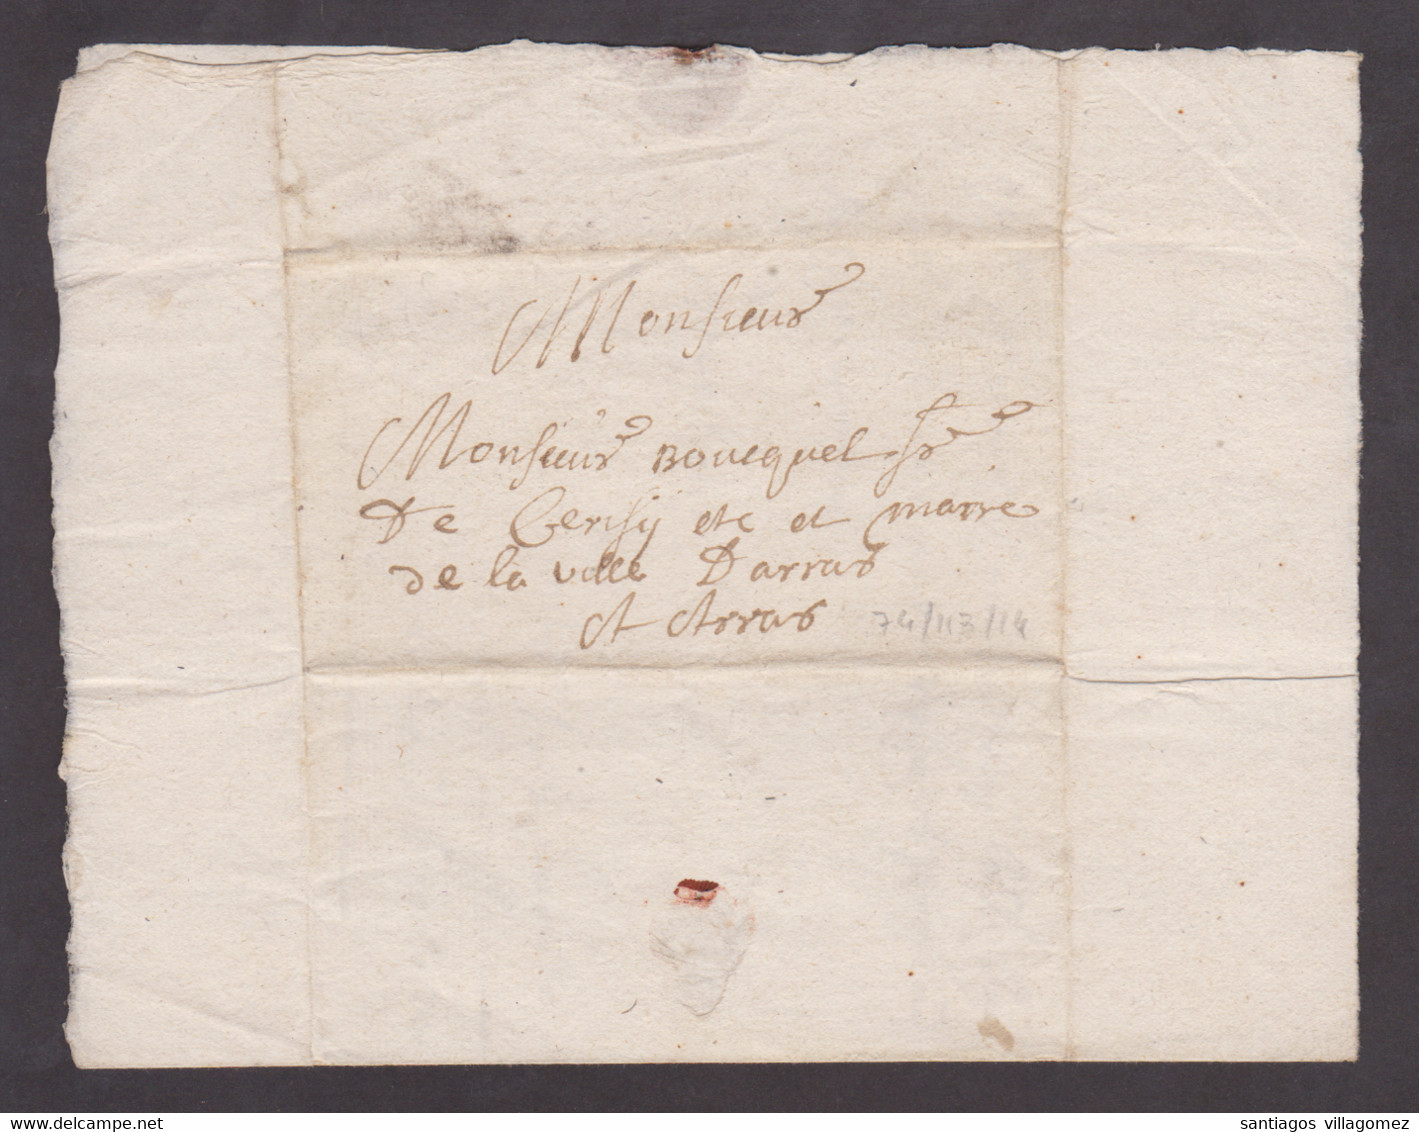 Monsieur
Monsieur Boucquel sr
De Cerisy etc et maire
de la ville Darras
A Arras 74/113/14
santiagos villagomez